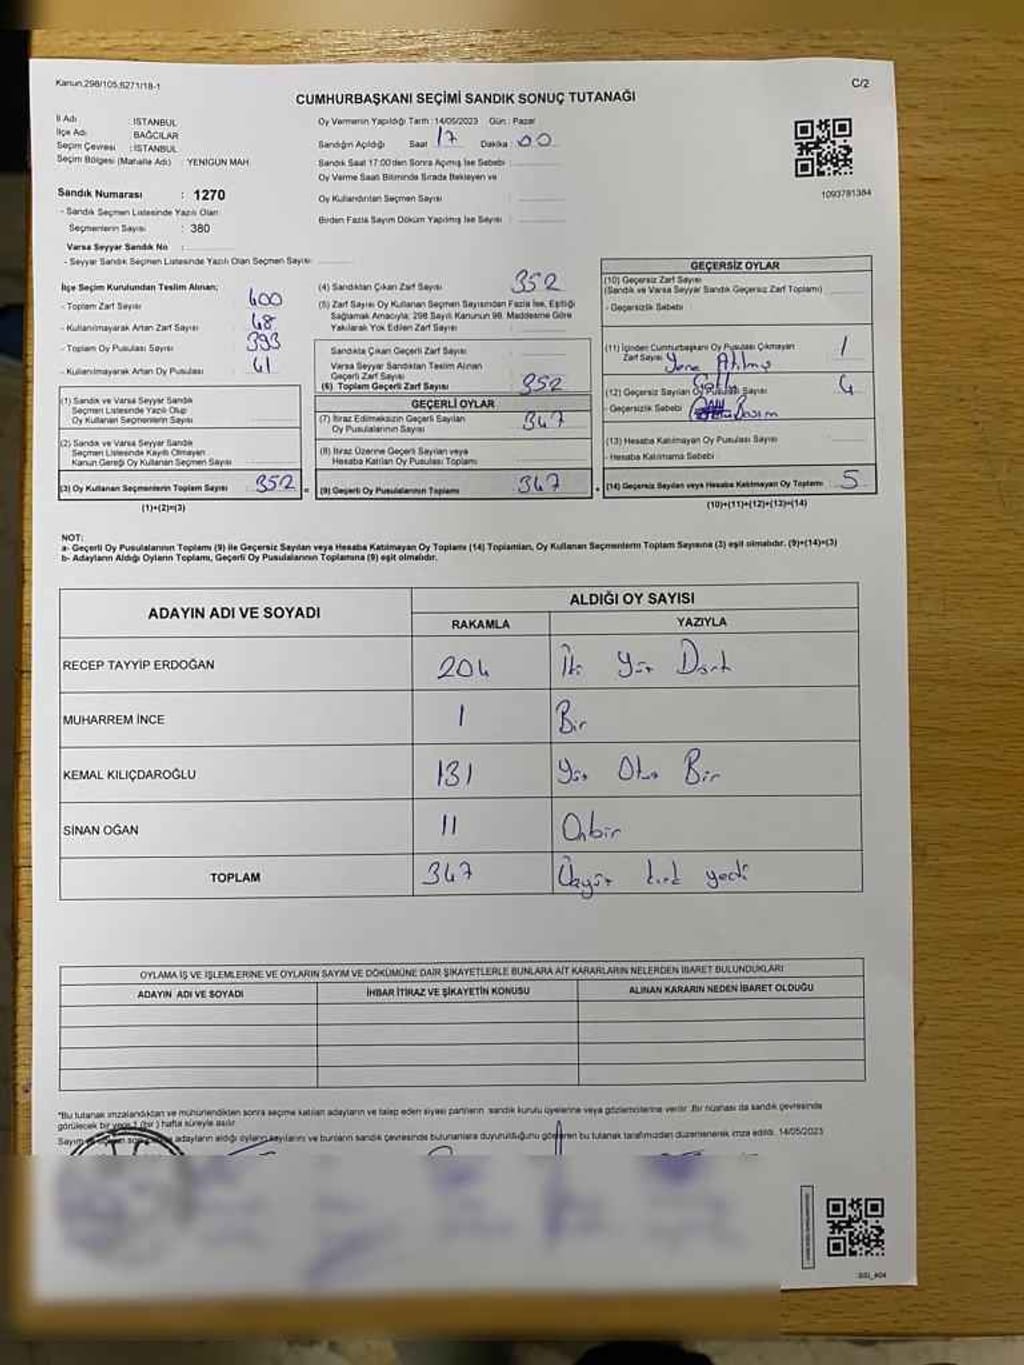 Kanun,298/105,6271/18-1
C/2
CUMHURBAŞKANI SEÇİMİ SANDIK SONUÇ TUTANAĞI
İl Adı : İSTANBUL
İlçe Adı : BAĞCILAR
Seçim Çevresi : İSTANBUL
Seçim Bölgesi (Mahalle Adı) : YENİGÜN MAH.
Oy Vermenin Yapıldığı Tarih : 14/05/2023 Gün : Pazar
Sandığın Açıldığı Saat 17 Dakika : 00
Sandık Saat 17:00'den Sonra Açılmış İse Sebebi :
Oy Verme Saati Bitiminde Sırada Bekleyen ve
Oy Kullandırılan Seçmen Sayısı :
Birden Fazla Sayım Döküm Yapılmış İse Sayısı :
1093781384
Sandık Numarası : 1270
- Sandık Seçmen Listesinde Yazılı Olan
Seçmenlerin Sayısı : 380
Varsa Seyyar Sandık No :
- Seyyar Sandık Seçmen Listesinde Yazılı Olan Seçmen Sayısı :
İlçe Seçim Kurulundan Teslim Alınan;
- Toplam Zarf Sayısı : 400
- Kullanılmayarak Artan Zarf Sayısı : 48
- Toplam Oy Pusulası Sayısı : 393
- Kullanılmayarak Artan Oy Pusulası : 41
(1) Sandık ve Varsa Seyyar Sandık
Seçmen Listesinde Yazılı Olup
Oy Kullanan Seçmenlerin Sayısı
(2) Sandık ve Varsa Seyyar Sandık
Seçmen Listesinde Kayıtlı Olmayan
Kanun Gereği Oy Kullanan Seçmen Sayısı
(3) Oy Kullanan Seçmenlerin Toplam Sayısı 352
(1)+(2)=(3)
(4) Sandıktan Çıkan Zarf Sayısı : 352
(5) Zarf Sayısı Oy Kullanan Seçmen Sayısından Fazla İse, Eşitliği
Sağlamak Amacıyla; 298 Sayılı Kanunun 98. Maddesine Göre
Yakılarak Yok Edilen Zarf Sayısı :
Sandıkta Çıkan Geçerli Zarf Sayısı :
Varsa Seyyar Sandıktan Teslim Alınan
Geçerli Zarf Sayısı :
(6) Toplam Geçerli Zarf Sayısı 352
GEÇERLİ OYLAR
(7) İtiraz Edilmeksizin Geçerli Sayılan
Oy Pusulalarının Sayısı : 347
(8) İtiraz Üzerine Geçerli Sayılan veya
Hesaba Katılan Oy Pusulası Toplamı :
(9) Geçerli Oy Pusulalarının Toplamı : 347
GEÇERSİZ OYLAR
(10) Geçersiz Zarf Sayısı
(Sandık ve Varsa Seyyar Sandık Geçersiz Zarf Toplamı)
- Geçersizlik Sebebi :
(11) İçinden Cumhurbaşkanı Oy Pusulası Çıkmayan
Zarf Sayısı 1
(12) Geçersiz Sayılan Oy Pusulası Sayısı : 4
- Geçersizlik Sebebi
(13) Hesaba Katılmayan Oy Pusulası Sayısı :
- Hesaba Katılmama Sebebi
(14) Geçersiz Sayılan veya Hesaba Katılmayan Oy Toplamı : 5
(10)+(11)+(12)+(13)=(14)
NOT:
a- Geçerli Oy Pusulalarının Toplamı (9) ile Geçersiz Sayılan veya Hesaba Katılmayan Oy Toplamı (14) Toplamları, Oy Kullanan Seçmenlerin Toplam Sayısına (3) eşit olmalıdır. (9)+(14)=(3)
b- Adayların Aldığı Oyların Toplamı, Geçerli Oy Pusulalarının Toplamına (9) eşit olmalıdır.
ADAYIN ADI VE SOYADI
ALDIĞI OY SAYISI
RAKAMLA YAZIYLA
RECEP TAYYİP ERDOĞAN 204 İki Yüz Dört
MUHARREM İNCE 1 Bir
KEMAL KILIÇDAROĞLU 131 Yüz Otuz Bir
SİNAN OĞAN 11 Onbir
TOPLAM 347 Üçyüz kırk yedi
OYLAMA İŞ VE İŞLEMLERİNE VE OYLARIN SAYIM VE DÖKÜMÜNE DAİR ŞİKAYETLERLE BUNLARA AİT KARARLARIN NELERDEN İBARET BULUNDUKLARI
ADAYIN ADI VE SOYADI İHBAR İTİRAZ VE ŞİKAYETİN KONUSU ALINAN KARARIN NEDEN İBARET OLDUĞU
*Bu tutanak imzalandıktan ve mühürlendikten sonra seçime katılan adayların ve talep eden siyasi partilerin sandık kurulu üyelerine veya gözlemcilerine verilir. Bir nüshası da sandık çevresinde
görülecek bir yere 1 (bir) hafta süreyle asılır.
adayların aldığı oyların sayılarını ve bunların sandık çevresinde bulunanlara duyurulduğunu gösteren bu tutanak tarafımızdan düzenlenerek imza edildi. 14/05/2023